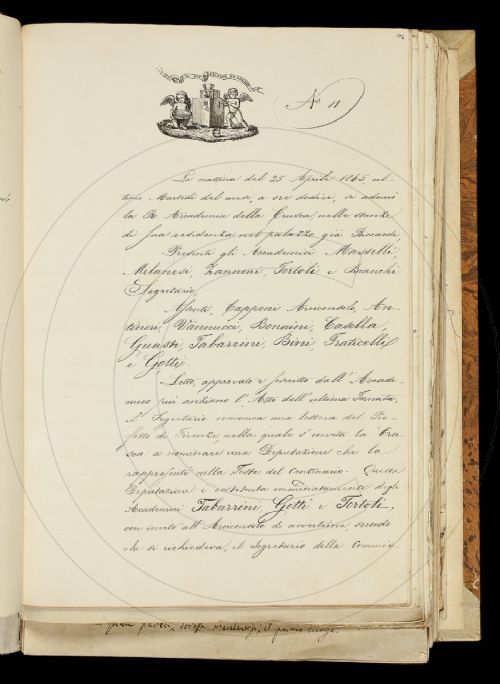 106
N.° 11
La mattina del 25 Aprile 1865, ul-
timo Martedì del mese, a ore dodici, si adunò
la R. Accademia della Crusca, nelle stanze
di sua residenza nel palazzo già Riccardi,
Presenti gli Accademici Masselli,
Milanesi, Zannoni, Tortoli e Bianchi
Segretario
Assenti, Capponi Arciconsolo, An-
tinori, Vannucci, Bonaini, Casella,
Guasti, Tabarrini, Bini, Fraticelli
e Gotti.
Letto, approvato e scritto dall'Accade-
mico più anziano l'Atto dell'ultima Tornata,
il Segretario comunica una lettera del Pre-
fetto di Firenze, nella quale s'invita la Cru-
sca a nominare una Deputazione che la
rappresenti nella Festa del Centenario. Questa
Deputazione è costituita immediatamente degli
Accademici Tabarrini, Gotti e Tortoli,
con invito all'Arciconsolo di avvertirne, secondo
che si richiedeva, il Segretario della Commis-